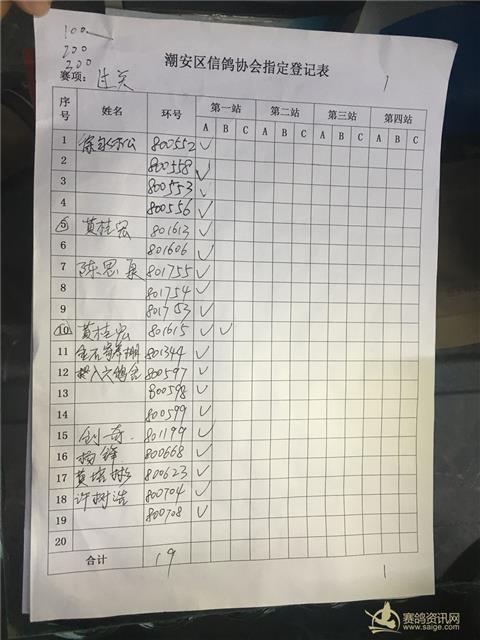 100
200
300
潮安区信鸽协会指定登记表
赛项: 过关 1
序号 姓名 环号 第一站 第二站 第三站 第四站
A B C A B C A B C A B C
1 800552 ✓
2 800558 ✓
3 800553 ✓
4 800556 ✓
5 黄桂宏 801613 ✓
6 801606 ✓
7 陈思泉 801755 ✓
8 801754 ✓
9 801753 ✓
10 黄桂宏 801615 ✓ ✓
11 801344 ✓
12 800597 ✓
13 800598 ✓
14 800599 ✓
15 801199 ✓
16 杨锋 800668 ✓
17 黄培彬 800623 ✓
18 许树浩 800704 ✓
19 800708 ✓
20
合计 19 1
赛鸽资讯网
www.saige.com